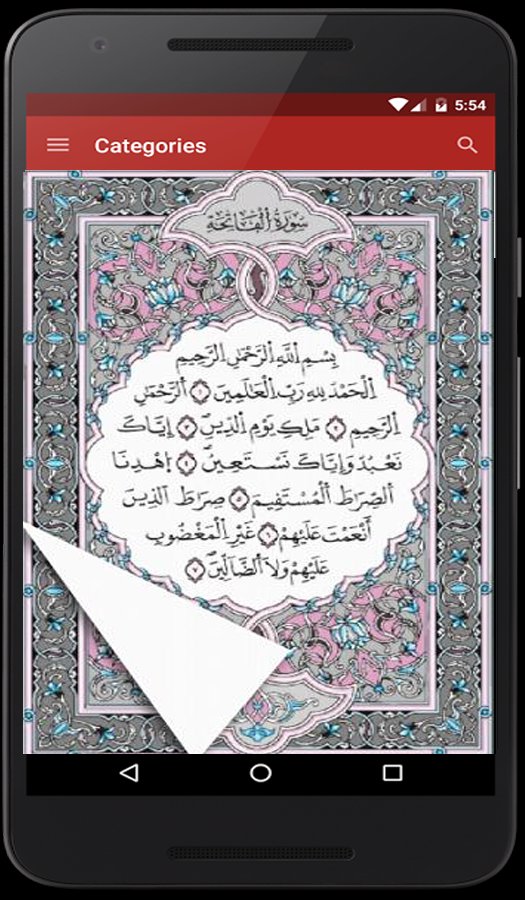 5:54
Categories
سُورَةُ الْفَاتِحَة
بِسْمِ اللَّهِ الرَّحْمَٰنِ الرَّحِيمِ
اَلْحَمْدُ لِلهِ رَبِّ الْعَٰلَمِينَ الرَّحْمَٰنِ
الرَّحِيمِ مَلِكِ يَوْمِ الدِّينِ إِيَّاكَ
نَعْبُدُ وَإِيَّاكَ نَسْتَعِينُ اِهْدِنَا
الصِّرَاطَ الْمُسْتَقِيمَ صِرَاطَ الَّذِينَ
أَنْعَمْتَ عَلَيْهِمْ غَيْرِ الْمَغْضُوبِ
عَلَيْهِمْ وَلَا الضَّالِّينَ